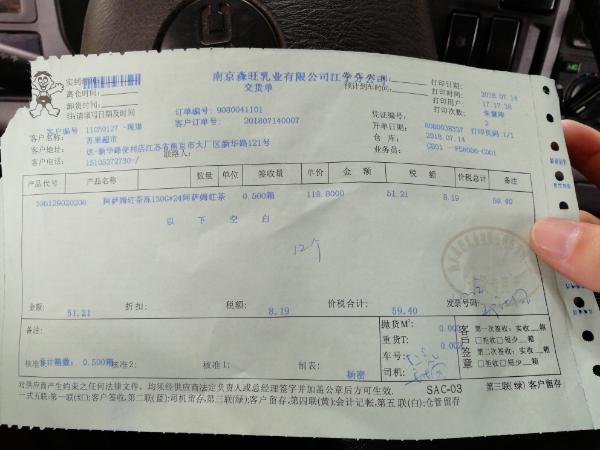 南京森旺乳业有限公司江宁分公司
交货单
实到时间:
离仓时间:
卸货时间:
往请填写日期及时间
预计到车时间:
打印日期: 2018.07.14
打印时间: 17:17:38
打印用户: 朱慧萍
打印次数: 2
订单编号: 9080041101
客户订单号: 201807140007
凭证编号: 8080038337 打印页码: 1/1
开单日期: 2018.07.14
仓 库: C001
业务员:
客户编号 11029127 -现销
客户名称: 苏果超市
客户地址: 达-新华路便利店江苏省南京市大厂区新华路121号
客户电话: 15105272730-/
联络人:
产品代号 产品名称 数量 单位 签收量 单价 金 额 税 额 价税总计 备注
阿萨姆红茶冻150G*24阿萨姆红茶 0.500箱 118.8000 51.21 8.19 59.40
以 下 空 白
12个
金额: 51.21 折扣: 税额: 8.19 价税合计: 59.40 发票号码:
备注:
合计箱数: 0.500箱
核准2: 核准1: 制表: 杨密
抛货M³: 0.002
重货T:
车号:
司机:
客户签章
第一次签收: 实__箱
□签收□短少__箱
第二次签收: 实__箱
□签收□短少__箱
对供应商产生约束之任何法律文件, 均须经供应商法定负责人或总经理签字并加盖公章后方可生效.
SAC-03 第三联(绿) 客户留存
一式五联: 第一联(红):客户签收, 第二联(蓝):司机留存, 第三联(绿):客户留存, 第四联(黄):会计记帐, 第五联(白):仓管留存